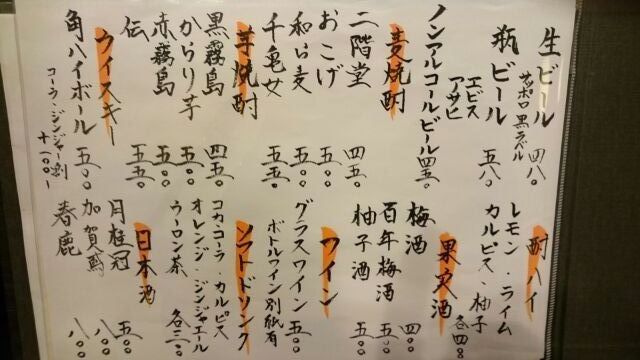 生ビール 四八〇
サッポロ黒ラベル
瓶ビール 五八〇
エビス
アサヒ
ノンアルコールビール 四五〇
麦焼酎
二階堂 四五〇
おこげ 五〇〇
和ら麦 五〇〇
千亀女 五五〇
芋焼酎
黒霧島 四五〇
からり芋 五〇〇
赤霧島 五五〇
伝 五五〇
ウイスキー
角ハイボール 五〇〇
コーラ・ジンジャー割
十一〇〇
酎ハイ
レモン・ライム
カルピス・柚子
各四〇〇
果実酒
梅酒 四〇〇
百年梅酒 五〇〇
柚子酒 五〇〇
ワイン
グラスワイン 五〇〇
ボトルワイン別紙有
ソフトドリンク
コカ・コーラ・カルピス
オレンジ・ジンジャエール
ウーロン茶 各三〇〇
日本酒
月桂冠 五〇〇
加賀鳶 八〇〇
春鹿 八〇〇